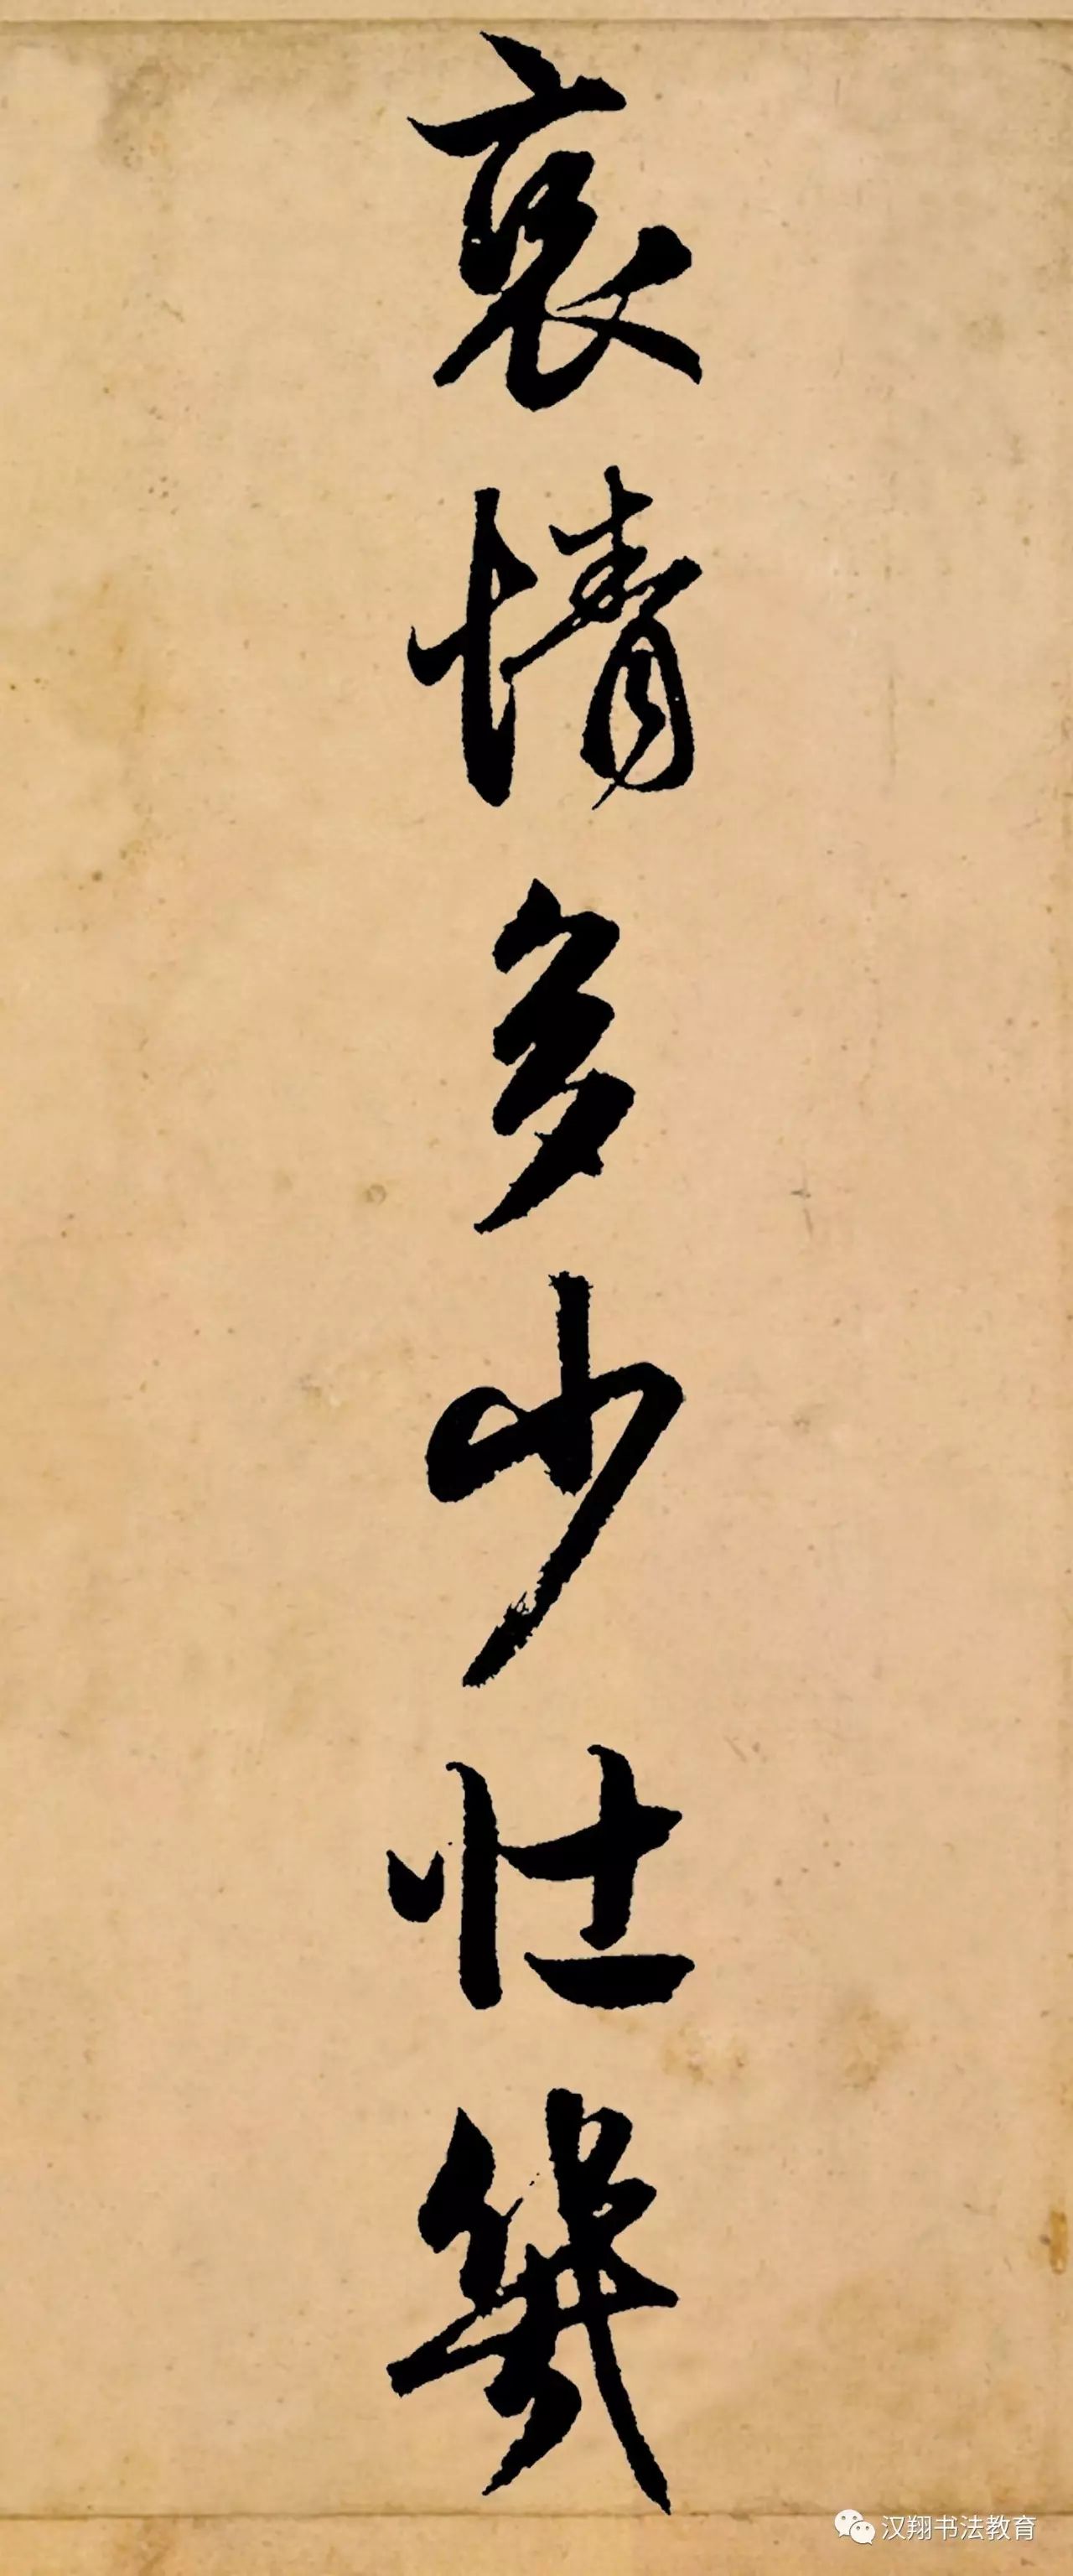 哀情多少壮幾
汉翔书法教育